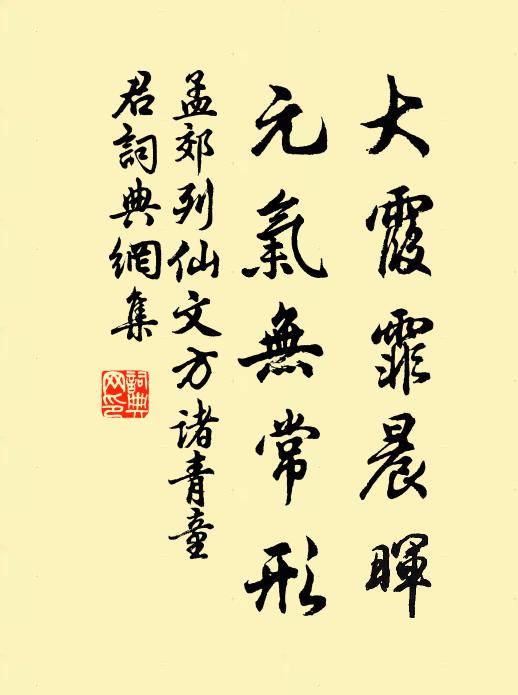 大霞霏晨暉
元氣無常形
孟郊列仙文方諸青童
君詞典網集
詞典网印